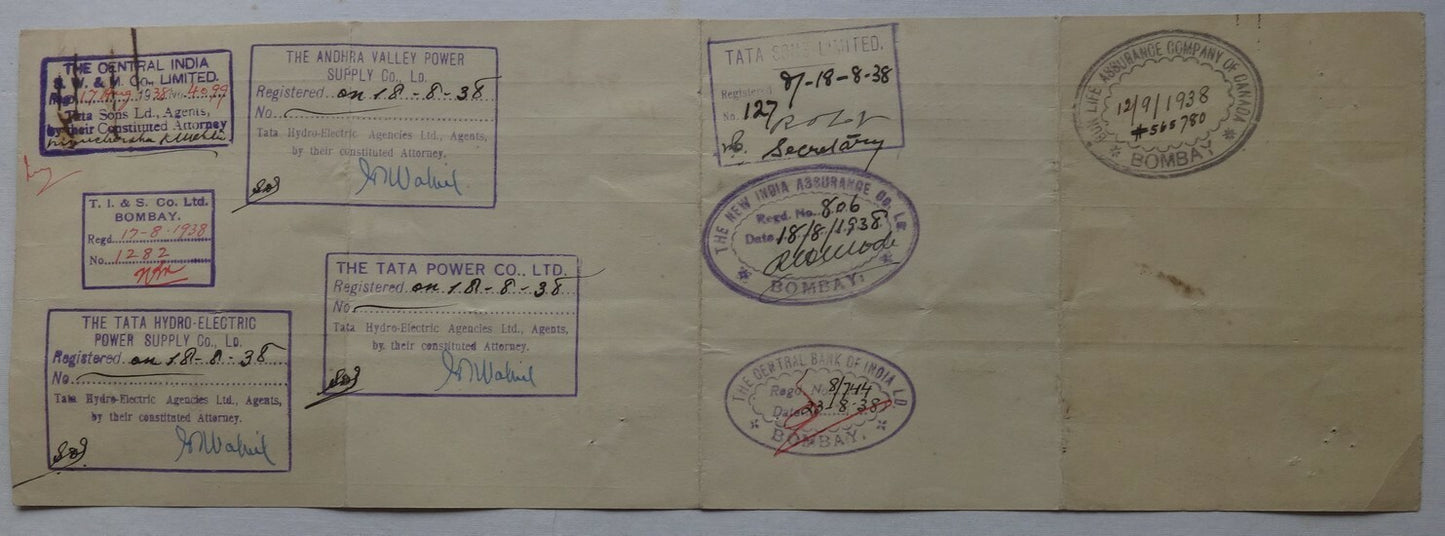 THE CENTRAL INDIA
S. W. & M. Co., LIMITED.
Regd. 17 Aug 1938 No. 4099
Tata Sons Ld., Agents,
by their Constituted Attorney
THE ANDHRA VALLEY POWER
SUPPLY Co., LD.
Registered on 18-8-38
No.
Tata Hydro-Electric Agencies Ltd., Agents,
by their constituted Attorney.
T. I. & S. Co. Ltd.
BOMBAY.
Regd. 17-8-1938
No. 1282
THE TATA HYDRO-ELECTRIC
POWER SUPPLY Co., LD.
Registered on 18-8-38
No.
Tata Hydro-Electric Agencies Ltd., Agents,
by their constituted Attorney.
THE TATA POWER CO., LTD.
Registered on 18-8-38
No.
Tata Hydro-Electric Agencies Ltd., Agents,
by their constituted Attorney.
TATA SONS LIMITED.
Registered 18-8-38
No. 127
Secretary
THE NEW INDIA ASSURANCE Co. LD
Regd. No. 806
Date 18/8/1938
BOMBAY.
THE CENTRAL BANK OF INDIA LD.
Regd. No. 8/744
Date 23-8-38
BOMBAY.
SUN LIFE ASSURANCE COMPANY OF CANADA
12/9/1938
#565780
BOMBAY